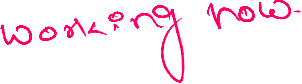 working now.